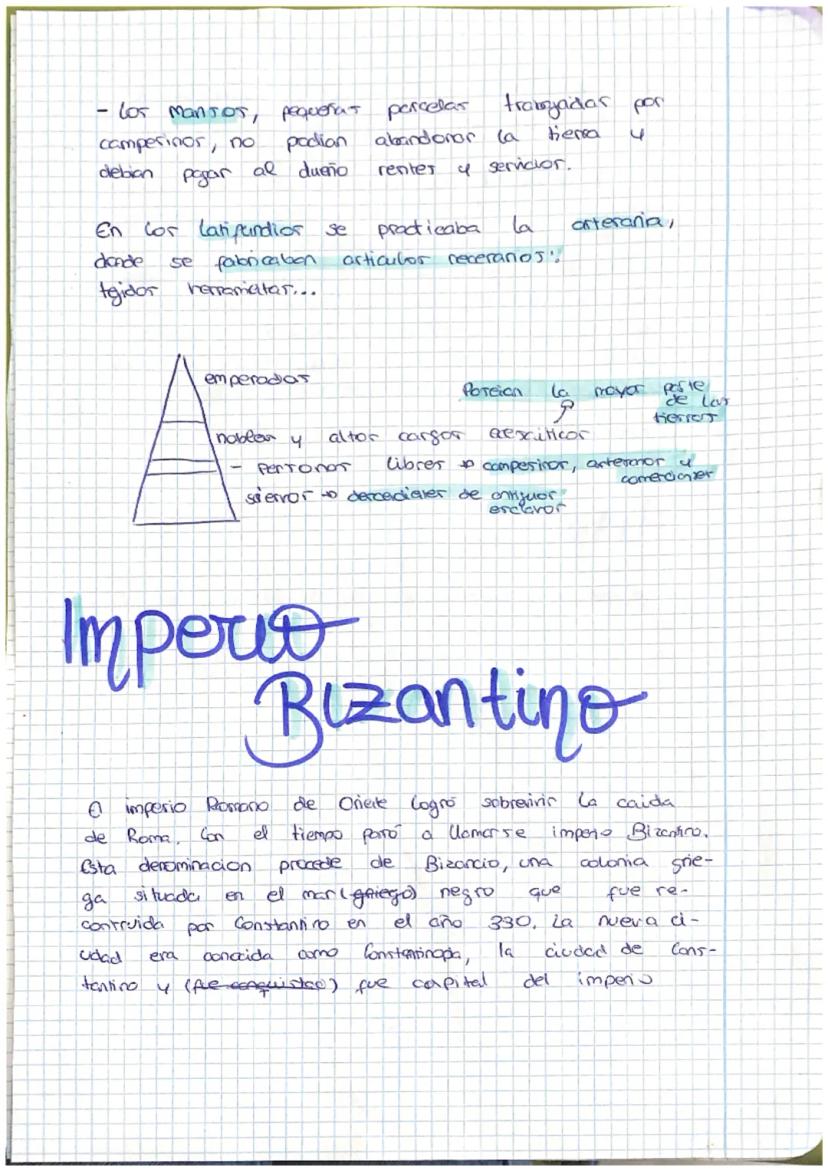 - los mansos, pequeñas parcelas trabajadas por
campesinos, no podian abandonar la tierra y
debian pagar al dueño rentas y servicios.
En los latifundios se practicaba la artesania,
donde se fabricaban articulos necesarios:
tejidos herramientas...
emperador
Poseian la mayor parte
de las
tierras
nobles y altos cargos
- personas libres → campesinos, artesanos y
comerciantes
siervos → descedientes de antiguos
esclavos
Imperio
Bizantino
El imperio Romano de Oriente logró sobrevivir la caida
de Roma. Con el tiempo pasó a llamarse imperio Bizantino.
Esta denominacion procede de Bizancio, una colonia grie-
ga situada en el mar (griego) negro que fue re-
contruida por Constantino en el año 330. La nueva ci-
udad era conocida como Constantinopla, la ciudad de Cons-
tantino y (fue conquistao) fue capital del imperio